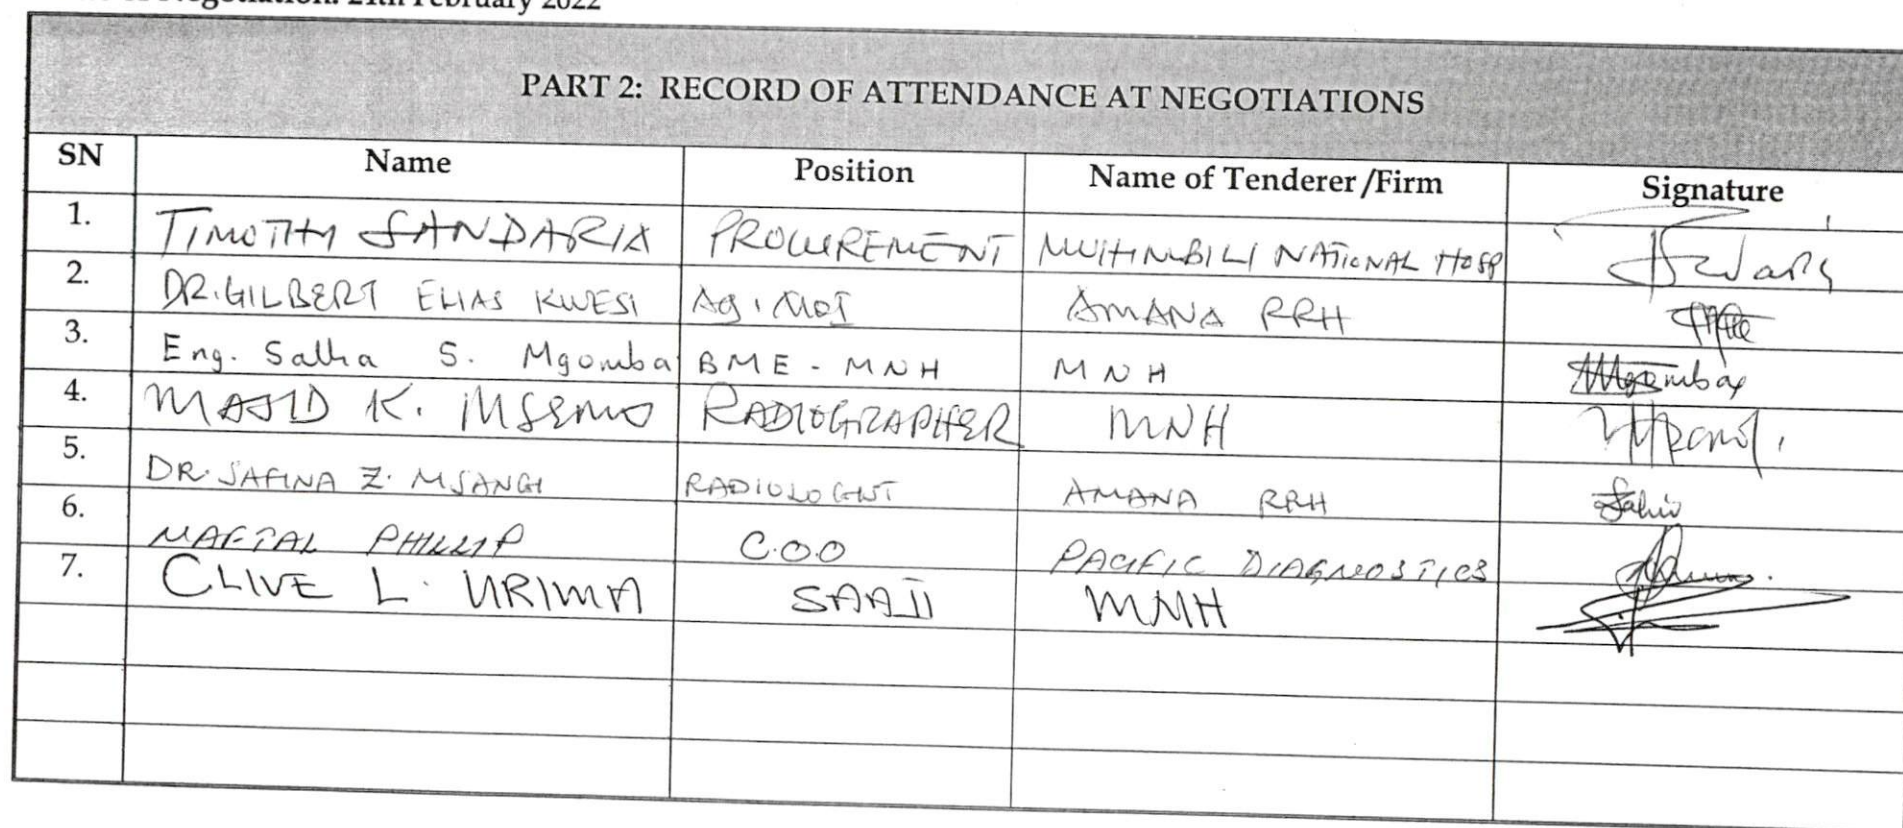 Negotiation: 21th February 2022
PART 2: RECORD OF ATTENDANCE AT NEGOTIATIONS
SN Name Position Name of Tenderer/Firm Signature
1. TIMOTHY SANDARIA PROCUREMENT MUHIMBILI NATIONAL HOSP
2. DR. GILBERT ELIAS KWESI Ag. MOI AMANA RRH
3. Eng. Salha S. Mgomba BME - MNH MNH
4. MAJID K. MSEMO RADIOGRAPHER MNH
5. DR. SAFINA Z. MSANGI RADIOLOGIST AMANA RRH
6. NAFTAL PHILLIP C.O.O PACIFIC DIAGNOSTICS
7. CLIVE L. URIMA SAAII MNH